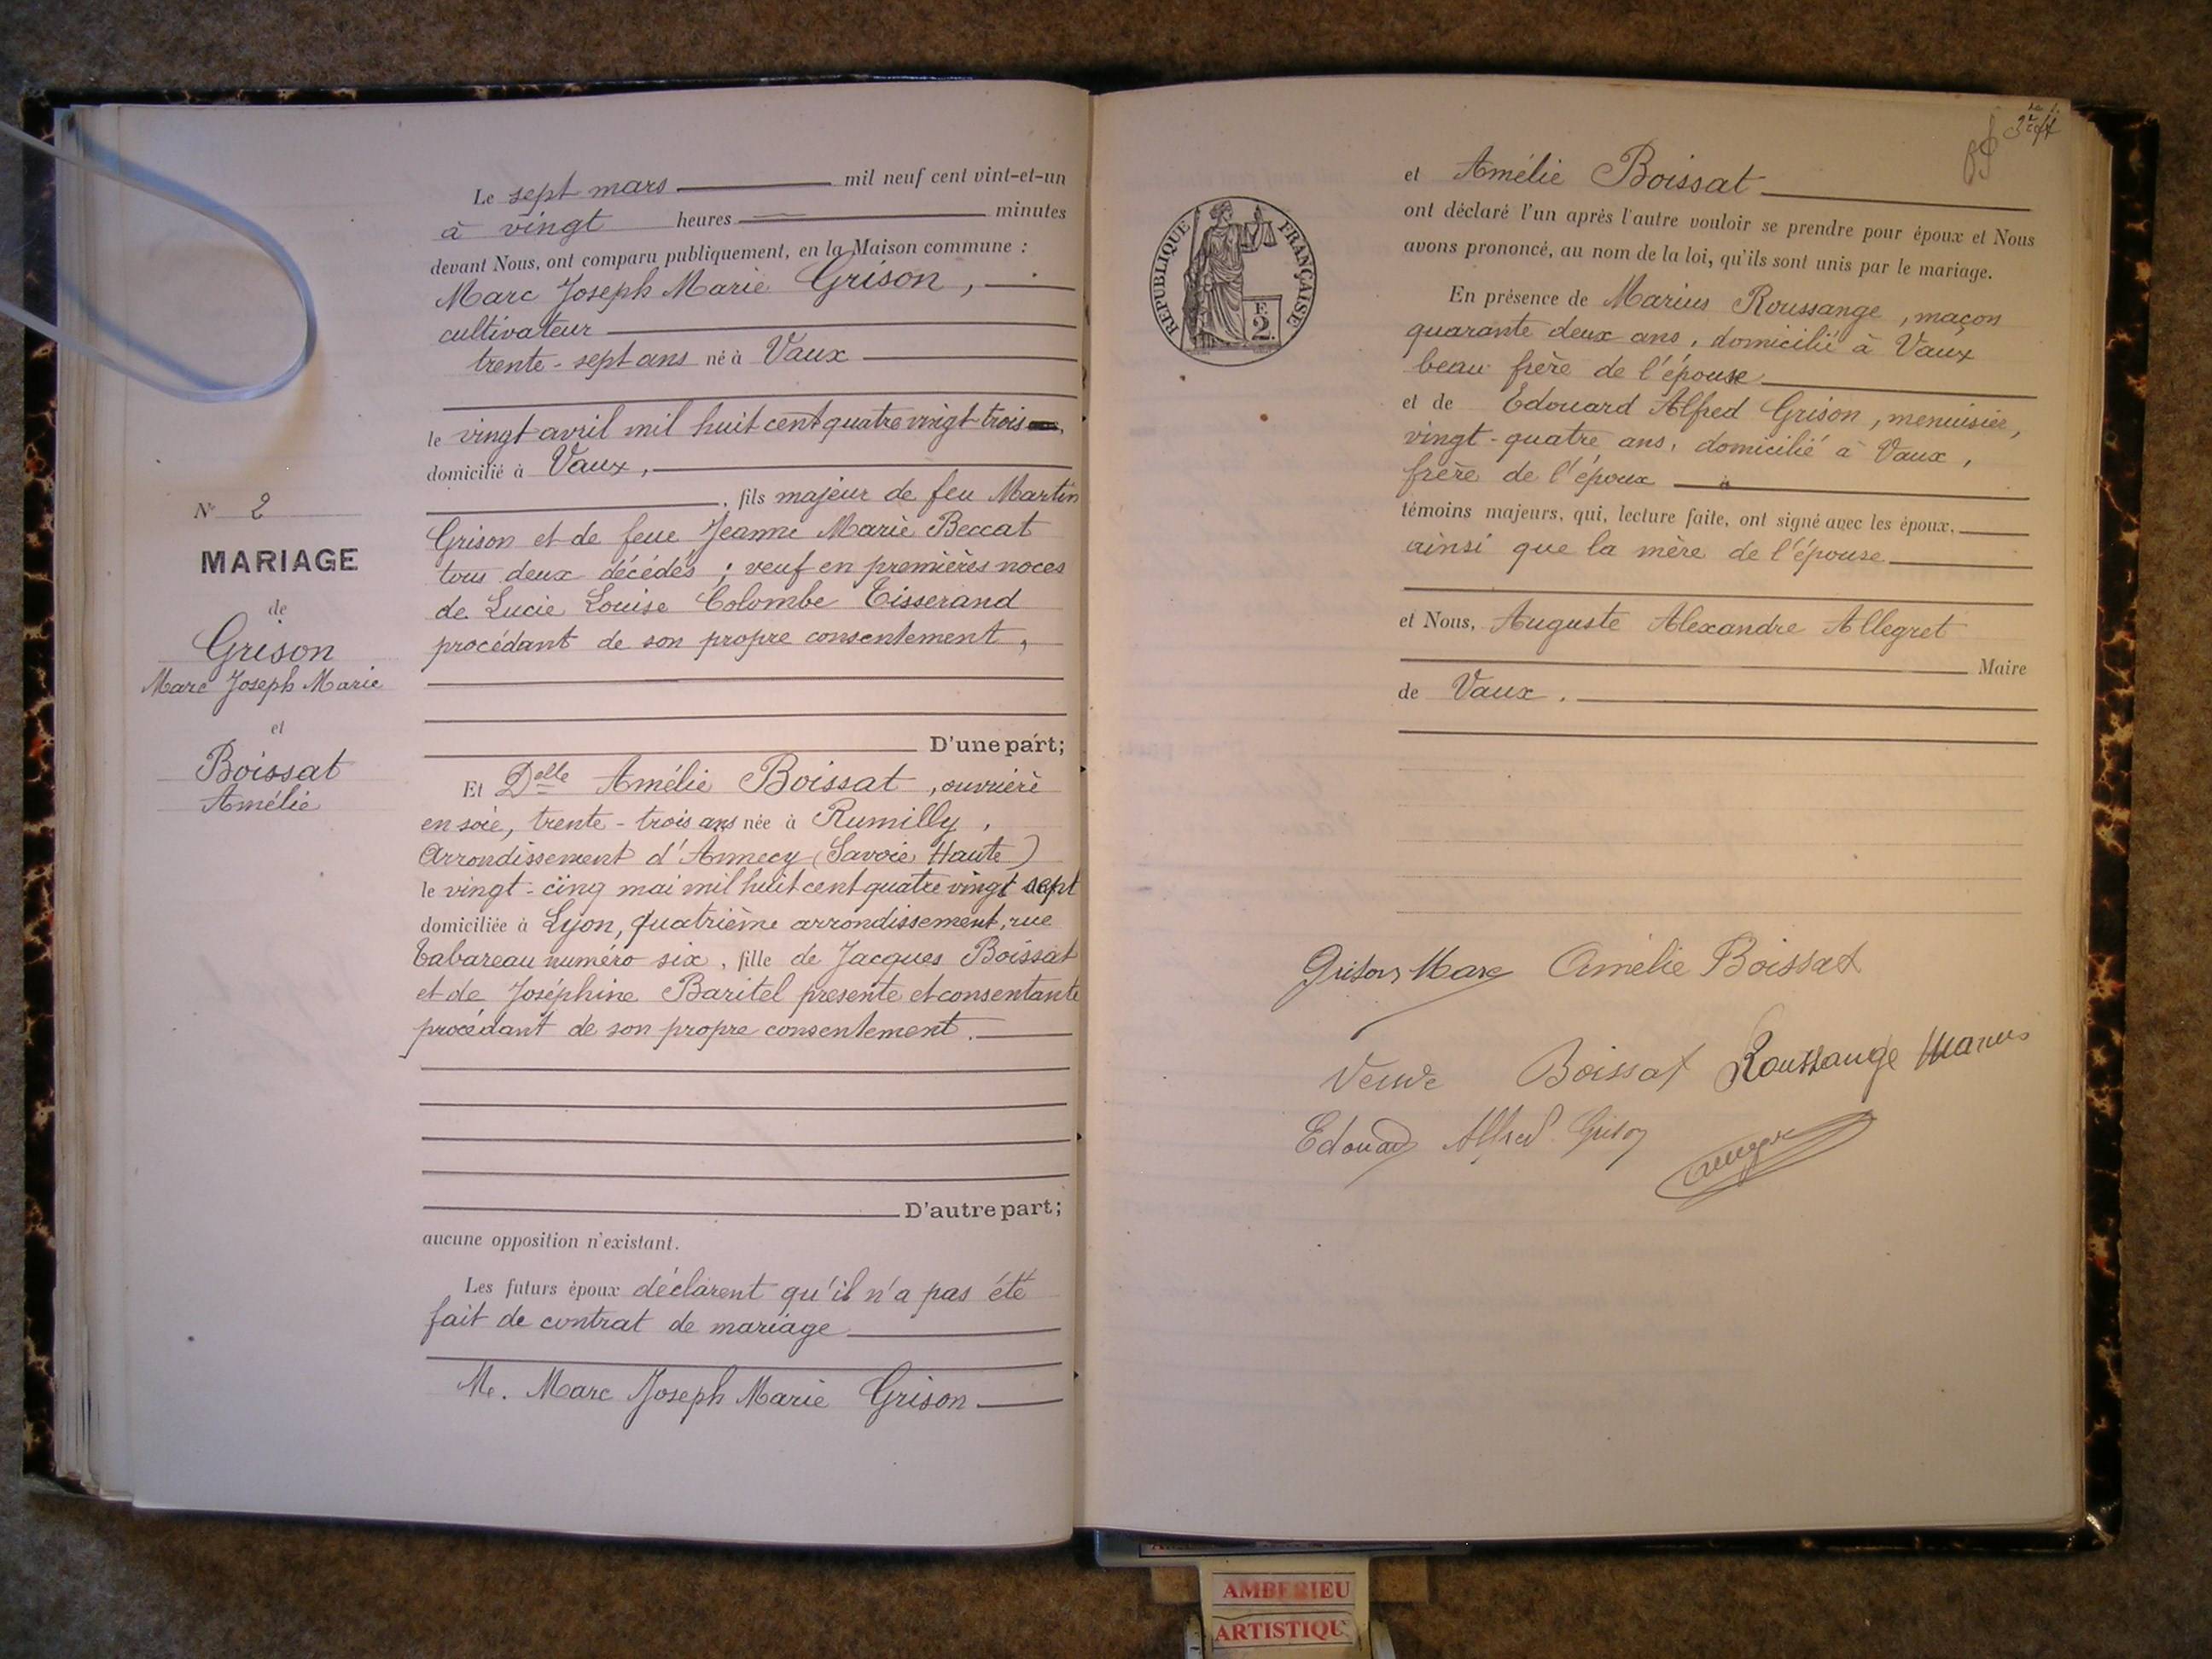 Le sept mars mil neuf cent vint-et-un
à vingt heures minutes
devant Nous, ont comparu publiquement, en la Maison commune :
Marc Joseph Marie Grison,
cultivateur
trente-sept ans né à Vaux
le vingt avril mil huit cent quatre vingt trois
domicilié à Vaux,
, fils majeur de feu Martin
Grison et de feue Jeanne Marie Beccat
tous deux décédés ; veuf en premières noces
de Lucie Louise Colombe Tisserand
procédant de son propre consentement,
D'une part;
Et Delle Amélie Boissat, ouvrière
en soie, trente-trois ans née à Rumilly,
Arrondissement d'Annecy (Savoie Haute)
le vingt-cinq mai mil huit cent quatre vingt sept
domiciliée à Lyon, quatrième arrondissement, rue
Tabareau numéro six, fille de Jacques Boissat
et de Joséphine Baritel présente et consentante
procédant de son propre consentement.
D'autre part;
aucune opposition n'existant.
Les futurs époux déclarent qu'il n'a pas été
fait de contrat de mariage
Mr. Marc Joseph Marie Grison
N° 2
MARIAGE
de
Grison
Marc Joseph Marie
et
Boissat
Amélie
REPUBLIQUE FRANÇAISE
2 F.
et Amélie Boissat
ont déclaré l'un après l'autre vouloir se prendre pour époux et Nous
avons prononcé, au nom de la loi, qu'ils sont unis par le mariage.
En présence de Marius Roussange, maçon
quarante deux ans, domicilié à Vaux
beau frère de l'épouse
et de Edouard Alfred Grison, menuisier,
vingt-quatre ans, domicilié à Vaux,
frère de l'époux
témoins majeurs, qui, lecture faite, ont signé avec les époux,
ainsi que la mère de l'épouse
et Nous, Auguste Alexandre Allegret
Maire
de Vaux.
Grison Marc Amélie Boissat
Veuve Boissat Roussange Marius
Edouard Alfred Grison
AMBERIEU
ARTISTIQU